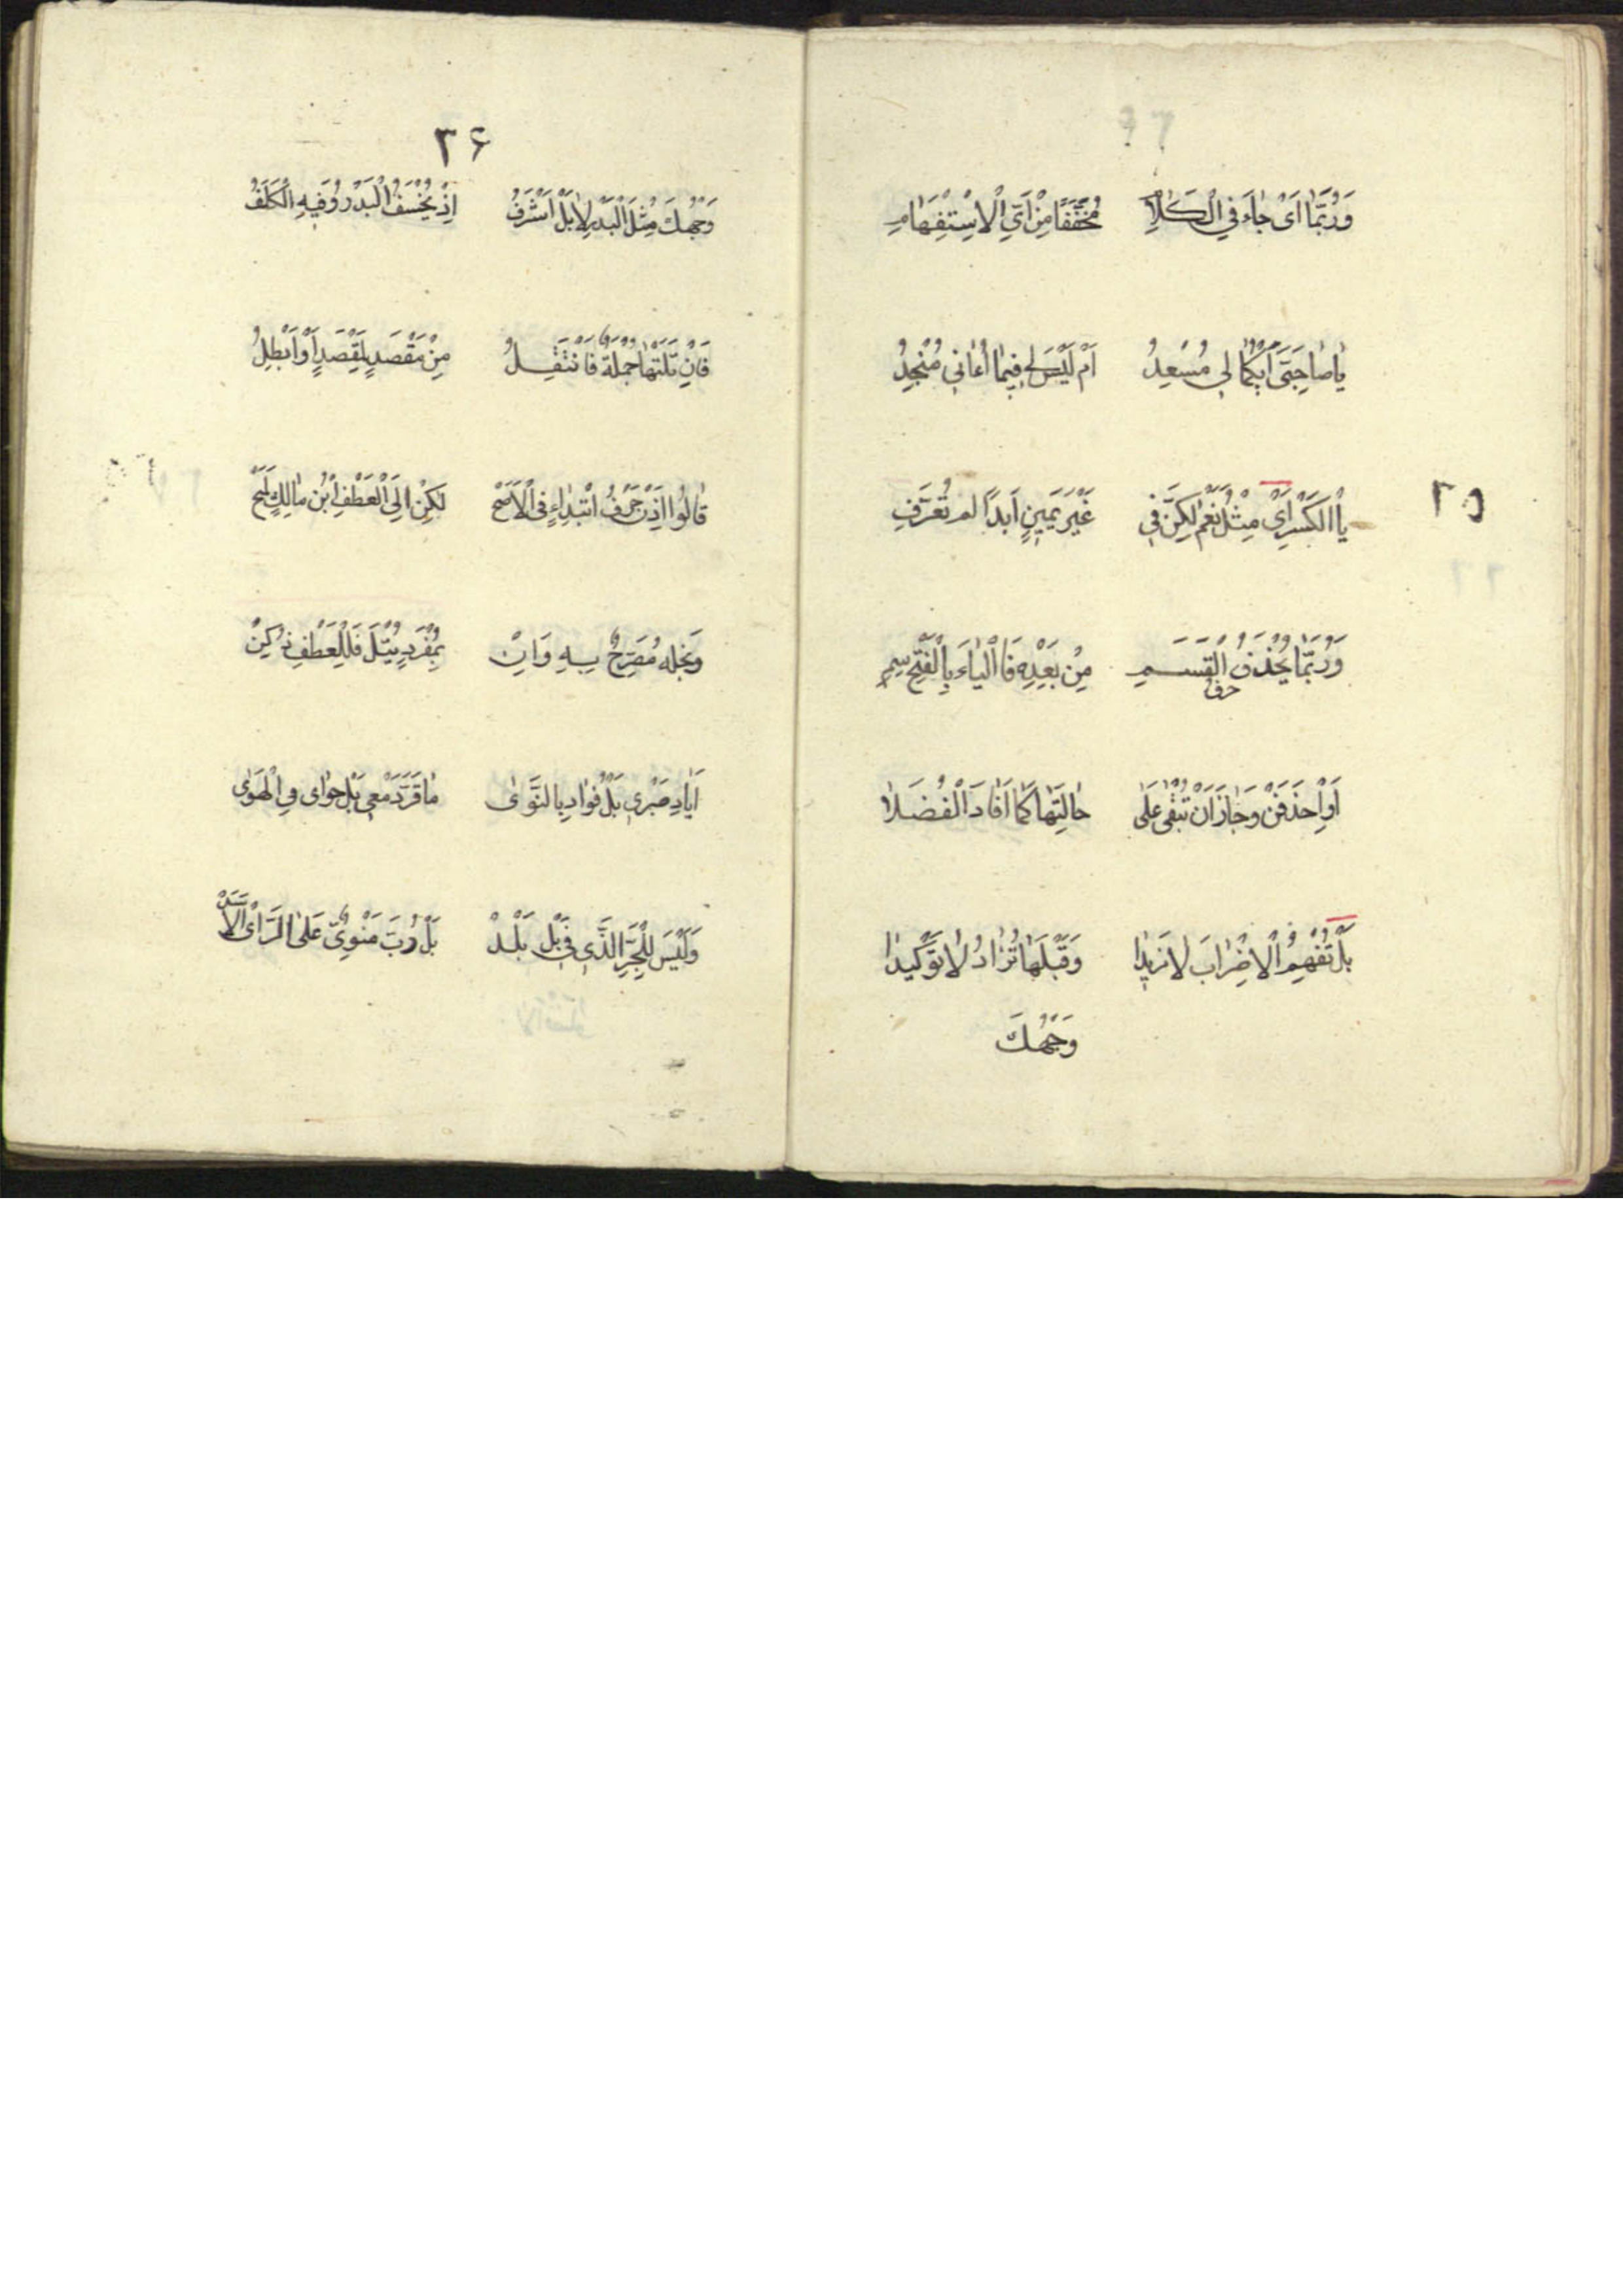 وَرُبَّمَا اَىْ جَاءَ فِي الْكَلَامِ مُخَفَّفًا مِنْ اَيِّ الْاِسْتِفْهَامِ
يَا صَاحِبَيَّ اَيُّكُمَا لِي مُسْعِدُ اَمْ لَيْسَ لِي فِيمَا اُعَانِي مُنْجِدُ
٢٥
بِالْكَسْرِ اِىْ مِثْلُ نَعَمْ لٰكِنَّ فِي غَيْرِ يَمِينٍ اَبَدًا لَمْ تُعْرَفِ
وَرُبَّمَا يُحْذَفُ حرف الْقَسَمِ مِنْ بَعْدِهِ فَالْيَاءَ بِالْفَتْحِ سِمِ
اَوِ احْذِفَنْ وَجَازَ اَنْ تُبْقٰى عَلٰى حَالَتِهَا كَمَا اَفَادَ الْفُضَلَا
بَلْ تُفْهِمُ الْاِضْرَابَ لَا تَزِيدَا وَقَبْلَهَا تُزَادُ لَا تَوْكِيدَا
وَجْهُكَ
٣۶
وَجْهُكَ مِثْلُ الْبَدْرِ لَا بَلْ اَشْرَفُ اِذْ يُخْسَفُ الْبَدْرُ وَفِيهِ الْكَلَفُ
فَاِنْ تَلَتْهَا جُمْلَةٌ فَانْتَقِلُ مِنْ مَقْصَدٍ لِمَقْصَدٍ اَوْ اَبْطِلُ
قَالُوا اِذَنْ حَرْفُ ابْتِدَاءٍ فِي الْاَصَحْ لٰكِنْ اِلَى الْعَطْفِ ابْنُ مَالِكٍ لَمَحْ
وَنَجْلُهُ مُصَرِّحٌ بِهِ وَاِنْ بِمُفْرَدٍ تُتْلَ فَلِلْعَطْفِ زُكِنْ
اَبَادَ صَبْرِي بَلْ فُوَادِي بِالنَّوٰى مَا قَرَّ دَمْعِي بَلْ جَوَاىَ فِي الْهَوٰى
وَلَيْسَ لِلْجَرِّ الَّذِي فِي بَلْ بَلَدْ بَلْ رُبَّ مَنْوِيٌّ عَلَى الرَّأْىِ الْاَسَدّْ